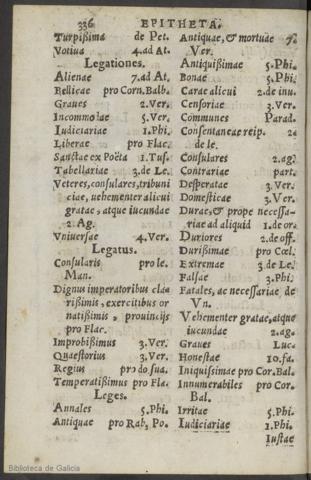 336 EPITHETA.
Turpißima de Pet.
Votiua 4.ad At.
Legationes.
Alienae 7.ad At.
Bellicae pro Corn.Balb.
Graues 2.Ver.
Incommodae 5.Ver.
Iudiciariae 1.Phi.
Liberae pro Flac.
Sanctae ex Poëta 1.Tus.
Tabellariae 3.de Le.
Veteres, consulares, tribuni
ciae, uehementer alicui
gratae, atque iucundae
2.Ag.
Vniuersae 4.Ver.
Legatus.
Consularis pro le.
Man.
Dignus imperatoribus cla
rißimis, exercitibus or
natißimis, prouincijs
pro Flac.
Improbißimus 3.Ver.
Quaestorius 3.Ver.
Regius pro do sua.
Temperatißimus pro Fla.
Leges.
Annales 5.Phi.
Antiquae pro Rab, Po.
Antiquae, & mortuae 7.
Ver.
Antiquißimae 5.Phi.
Bonae 5.Phi.
Carae alicui 2.de inu.
Censoriae 3.Ver.
Communes Parad.
Consentaneae reip. 2.
de le.
Consulares 2.ag.
Contrariae part.
Desperatae 3.Ver.
Domesticae 3.Ver.
Durae, & prope necessa-
riae ad aliquid 1.de or.
Duriores 2.de off.
Durißimae pro Cœl.
Extremae 3.de Le.
Falsae 3.Phi.
Fatales, ac necessariae de
Vn.
Vehementer gratae, atque
iucundae 2.ag.
Graues Luc.
Honestae 10.fa.
Iniquisimae pro Cor.Bal.
Innumerabiles pro Cor.
Bal.
Irritae 5.Phi.
Iudiciariae 1.Phi.
Iustae
Biblioteca de Galicia